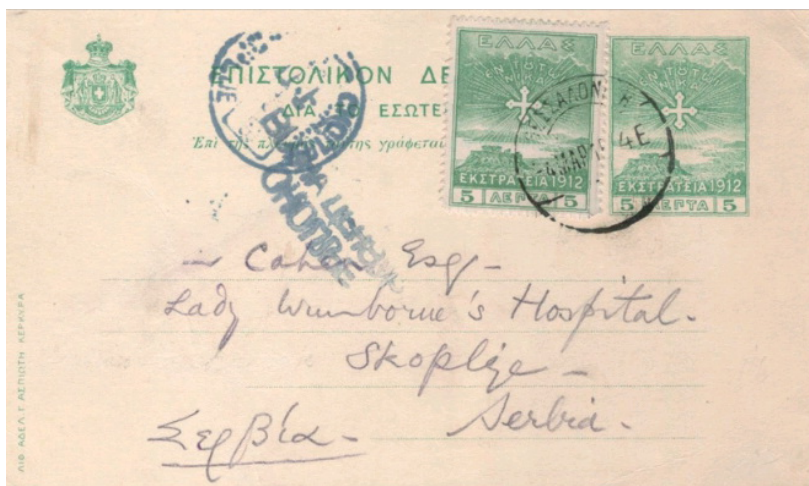 ΕΠΙΣΤΟΛΙΚΟΝ ΔΕ
ΔΙΑ ΤΟ ΕΣΩΤΕ
Ἐπὶ τῆς γράφεται
ΕΛΛΑΣ
ΕΝ ΤΟΥΤΩ
ΝΙΚΑ
ΕΚΣΤΡΑΤΕΙΑ 1912
5 ΛΕΠΤΑ 5
ΕΛΛΑΣ
ΕΝ ΤΟΥΤΩ
ΝΙΚΑ
ΕΚΣΤΡΑΤΕΙΑ 1912
5 ΛΕΠΤΑ 5
4 ΜΑΡ 4Ε
Cahen Esq-
Lady Wimborne's Hospital.
Skoplje -
Serbia -
Σερβία -
ΛΙΘ. ΑΔΕΛ. Γ. ΑΣΠΙΩΤΗ ΚΕΡΚΥΡΑ